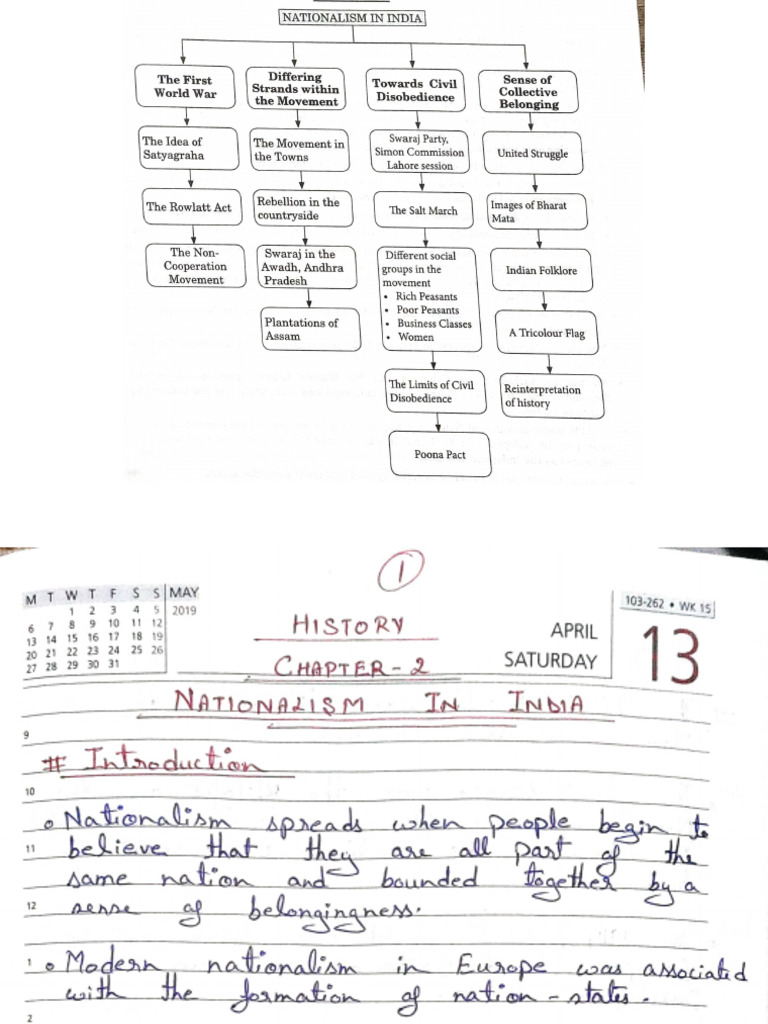 NATIONALISM IN INDIA
The First
World War
The Idea of
Satyagraha
The Rowlatt Act
The Non-
Cooperation
Movement
Differing
Strands within
the Movement
The Movement in
the Towns
Rebellion in the
countryside
Swaraj in the
Awadh, Andhra
Pradesh
Plantations of
Assam
Towards Civil
Disobedience
Swaraj Party,
Simon Commission
Lahore session
The Salt March
Different social
groups in the
movement
• Rich Peasants
• Poor Peasants
• Business Classes
• Women
The Limits of Civil
Disobedience
Poona Pact
Sense of
Collective
Belonging
United Struggle
Images of Bharat
Mata
Indian Folklore
A Tricolour Flag
Reinterpretation
of history
1
M T W T F S S MAY
1 2 3 4 5 2019
6 7 8 9 10 11 12
13 14 15 16 17 18 19
20 21 22 23 24 25 26
27 28 29 30 31
HISTORY
CHAPTER-2
NATIONALISM IN INDIA
APRIL
SATURDAY
103-262 • WK 15
13
9
# Introduction
10
o Nationalism spreads when people begin to
11 believe that they are all part of the
same nation and bounded together by a
12 sense of belongingness.
1 o Modern nationalism in Europe was associated
with the formation of nation-states.
2